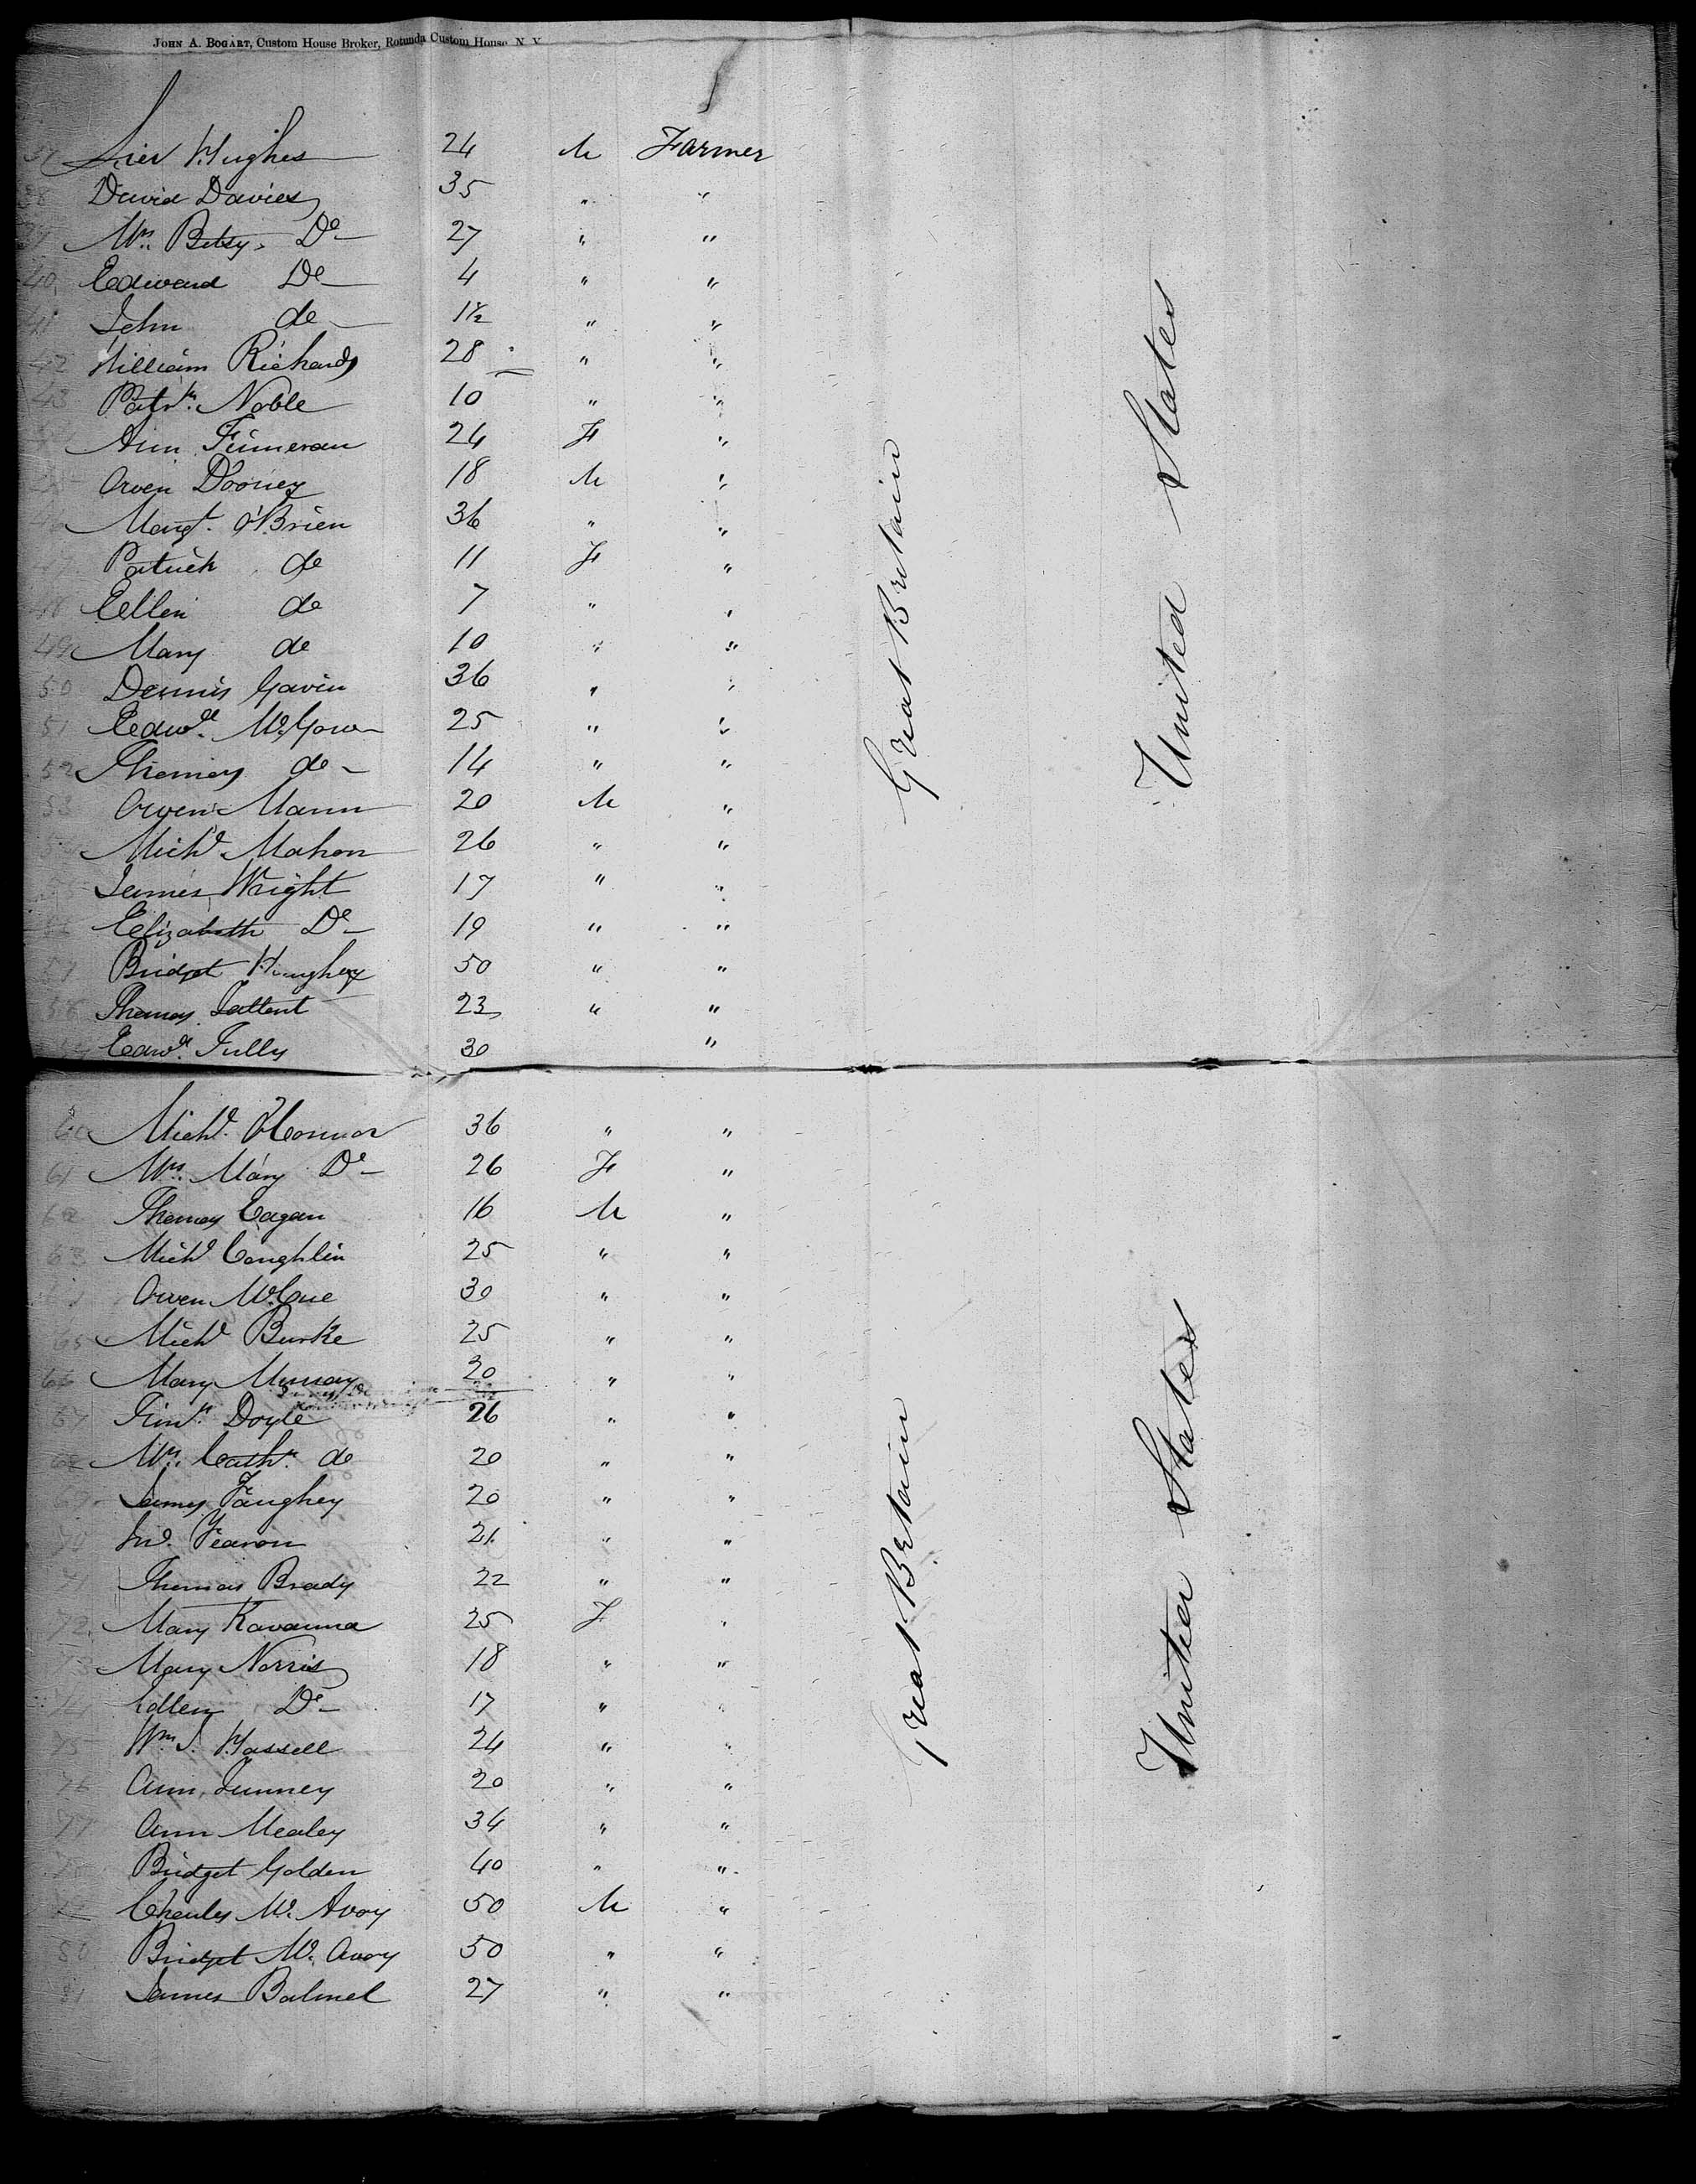 JOHN A. BOGART, Custom House Broker, Rotunda Custom House N. Y.
37 Hughes 24 M Farmer
38 David Davies 35 " "
39 Mrs. Betsy Do 27 " "
40 Edward Do 4 " "
41 John do 1½ " "
42 William Richards 28 " "
43 Patrk. Noble 10 " "
Ann Finneran 24 F "
Owen Dooney 18 M "
Margt. O'Brien 36 " "
47 Patrick do 11 F "
48 Ellen do 7 " "
49 Mary do 10 " "
50 Dennis Gavin 36 " "
51 Edwd. McGowan 25 " "
52 Thomas do 14 " "
53 Owen Mann 20 M "
Michl Mahon 26 " "
James Wright 17 " "
Elizabeth Do 19 " "
57 Bridget Haughey 50 " "
58 Thomas Tattent 23 " "
Edwd. Tully 30 "
60 Michl. O'Connor 36 " "
61 Mrs. Mary Do 26 F "
62 Thomas Eagan 16 M "
63 Michl Coughlin 25 " "
Owen McCue 30 " "
65 Michl Burke 25 " "
66 Mary Murray 20 " "
67 Timy. Doyle 26 " "
68 Mrs. Cathn. do 20 " "
69 James Faughey 20 " "
70 Jno. Fearon 21 " "
71 Thomas Brady 22 " "
72 Mary Kavanna 25 F "
73 Mary Norris 18 " "
74 Ellen Do 17 " "
75 Wm J. Hassell 24 " "
76 Ann Tunney 20 " "
77 Ann Mealey 34 " "
78 Bridget Golden 40 " "
79 Charles Mc. Avoy 50 M "
80 Bridget Mc. Avoy 50 " "
81 James Balmel 27 " "
Great Britain
United States
Great Britain
United States